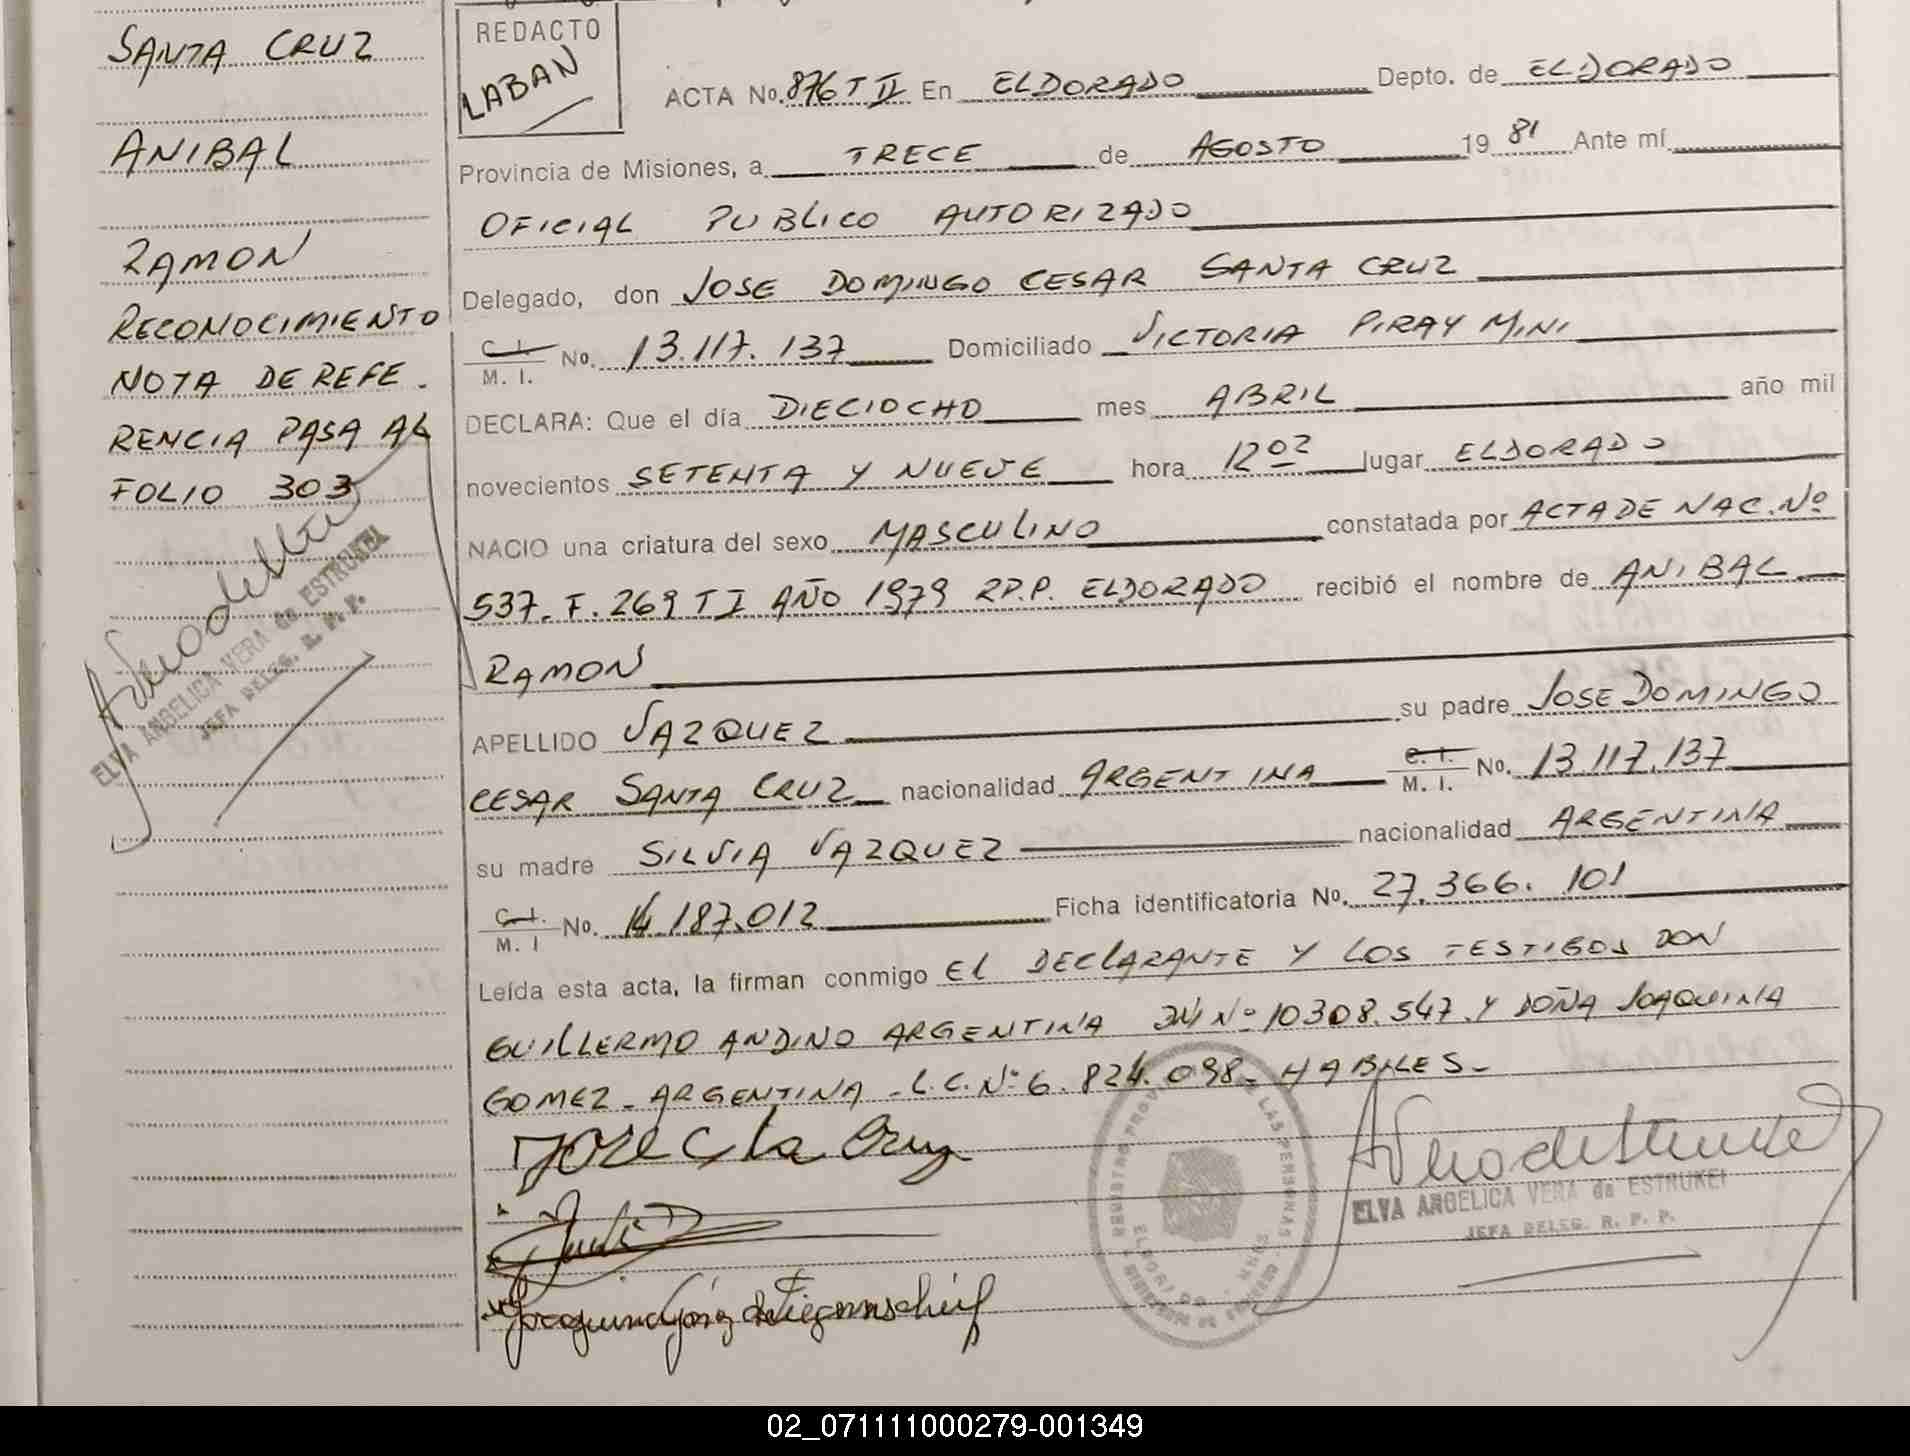 SANTA CRUZ
ANIBAL
RAMON
RECONOCIMIENTO
NOTA DE REFE.
RENCIA PASA AL
FOLIO 303
ELVA ANGELICA VERA de ESTRUKEI
JEFA DELEG. R. P. P.
REDACTO
LABAN
ACTA No. 876 T II En ELDORADO Depto. de ELDORADO
Provincia de Misiones, a TRECE de AGOSTO 19 81 Ante mí
OFICIAL PUBLICO AUTORIZADO
Delegado, don JOSE DOMINGO CESAR SANTA CRUZ
C. I. / M. I. No. 13.117.137 Domiciliado VICTORIA PIRAY MINI
DECLARA: Que el día DIECIOCHO mes ABRIL año mil
novecientos SETENTA Y NUEVE hora 12 02 lugar ELDORADO
NACIO una criatura del sexo MASCULINO constatada por ACTA DE NAC. Nº
537. F. 269 T I AÑO 1979 RP.P. ELDORADO recibió el nombre de ANIBAL
RAMON
APELLIDO VAZQUEZ su padre JOSE DOMINGO
CESAR SANTA CRUZ nacionalidad ARGENTINA C. I. / M. I. No. 13.117.137
su madre SILVIA VAZQUEZ nacionalidad ARGENTINA
C. I. / M. I No. 14.187.012 Ficha identificatoria No. 27.366.101
Leída esta acta, la firman conmigo El DEClARANTE Y LOS TESTIGOS DON
GUILLERMO ANDINO ARGENTINA DNI Nº 10308.547. Y DOÑA JOAQUINA
GOMEZ - ARGENTINA - L.C. Nº 6.824.098 - HABILES -
ELVA ANGELICA VERA de ESTRUKEI
JEFA DELEG. R. P. P.
02_071111000279-001349